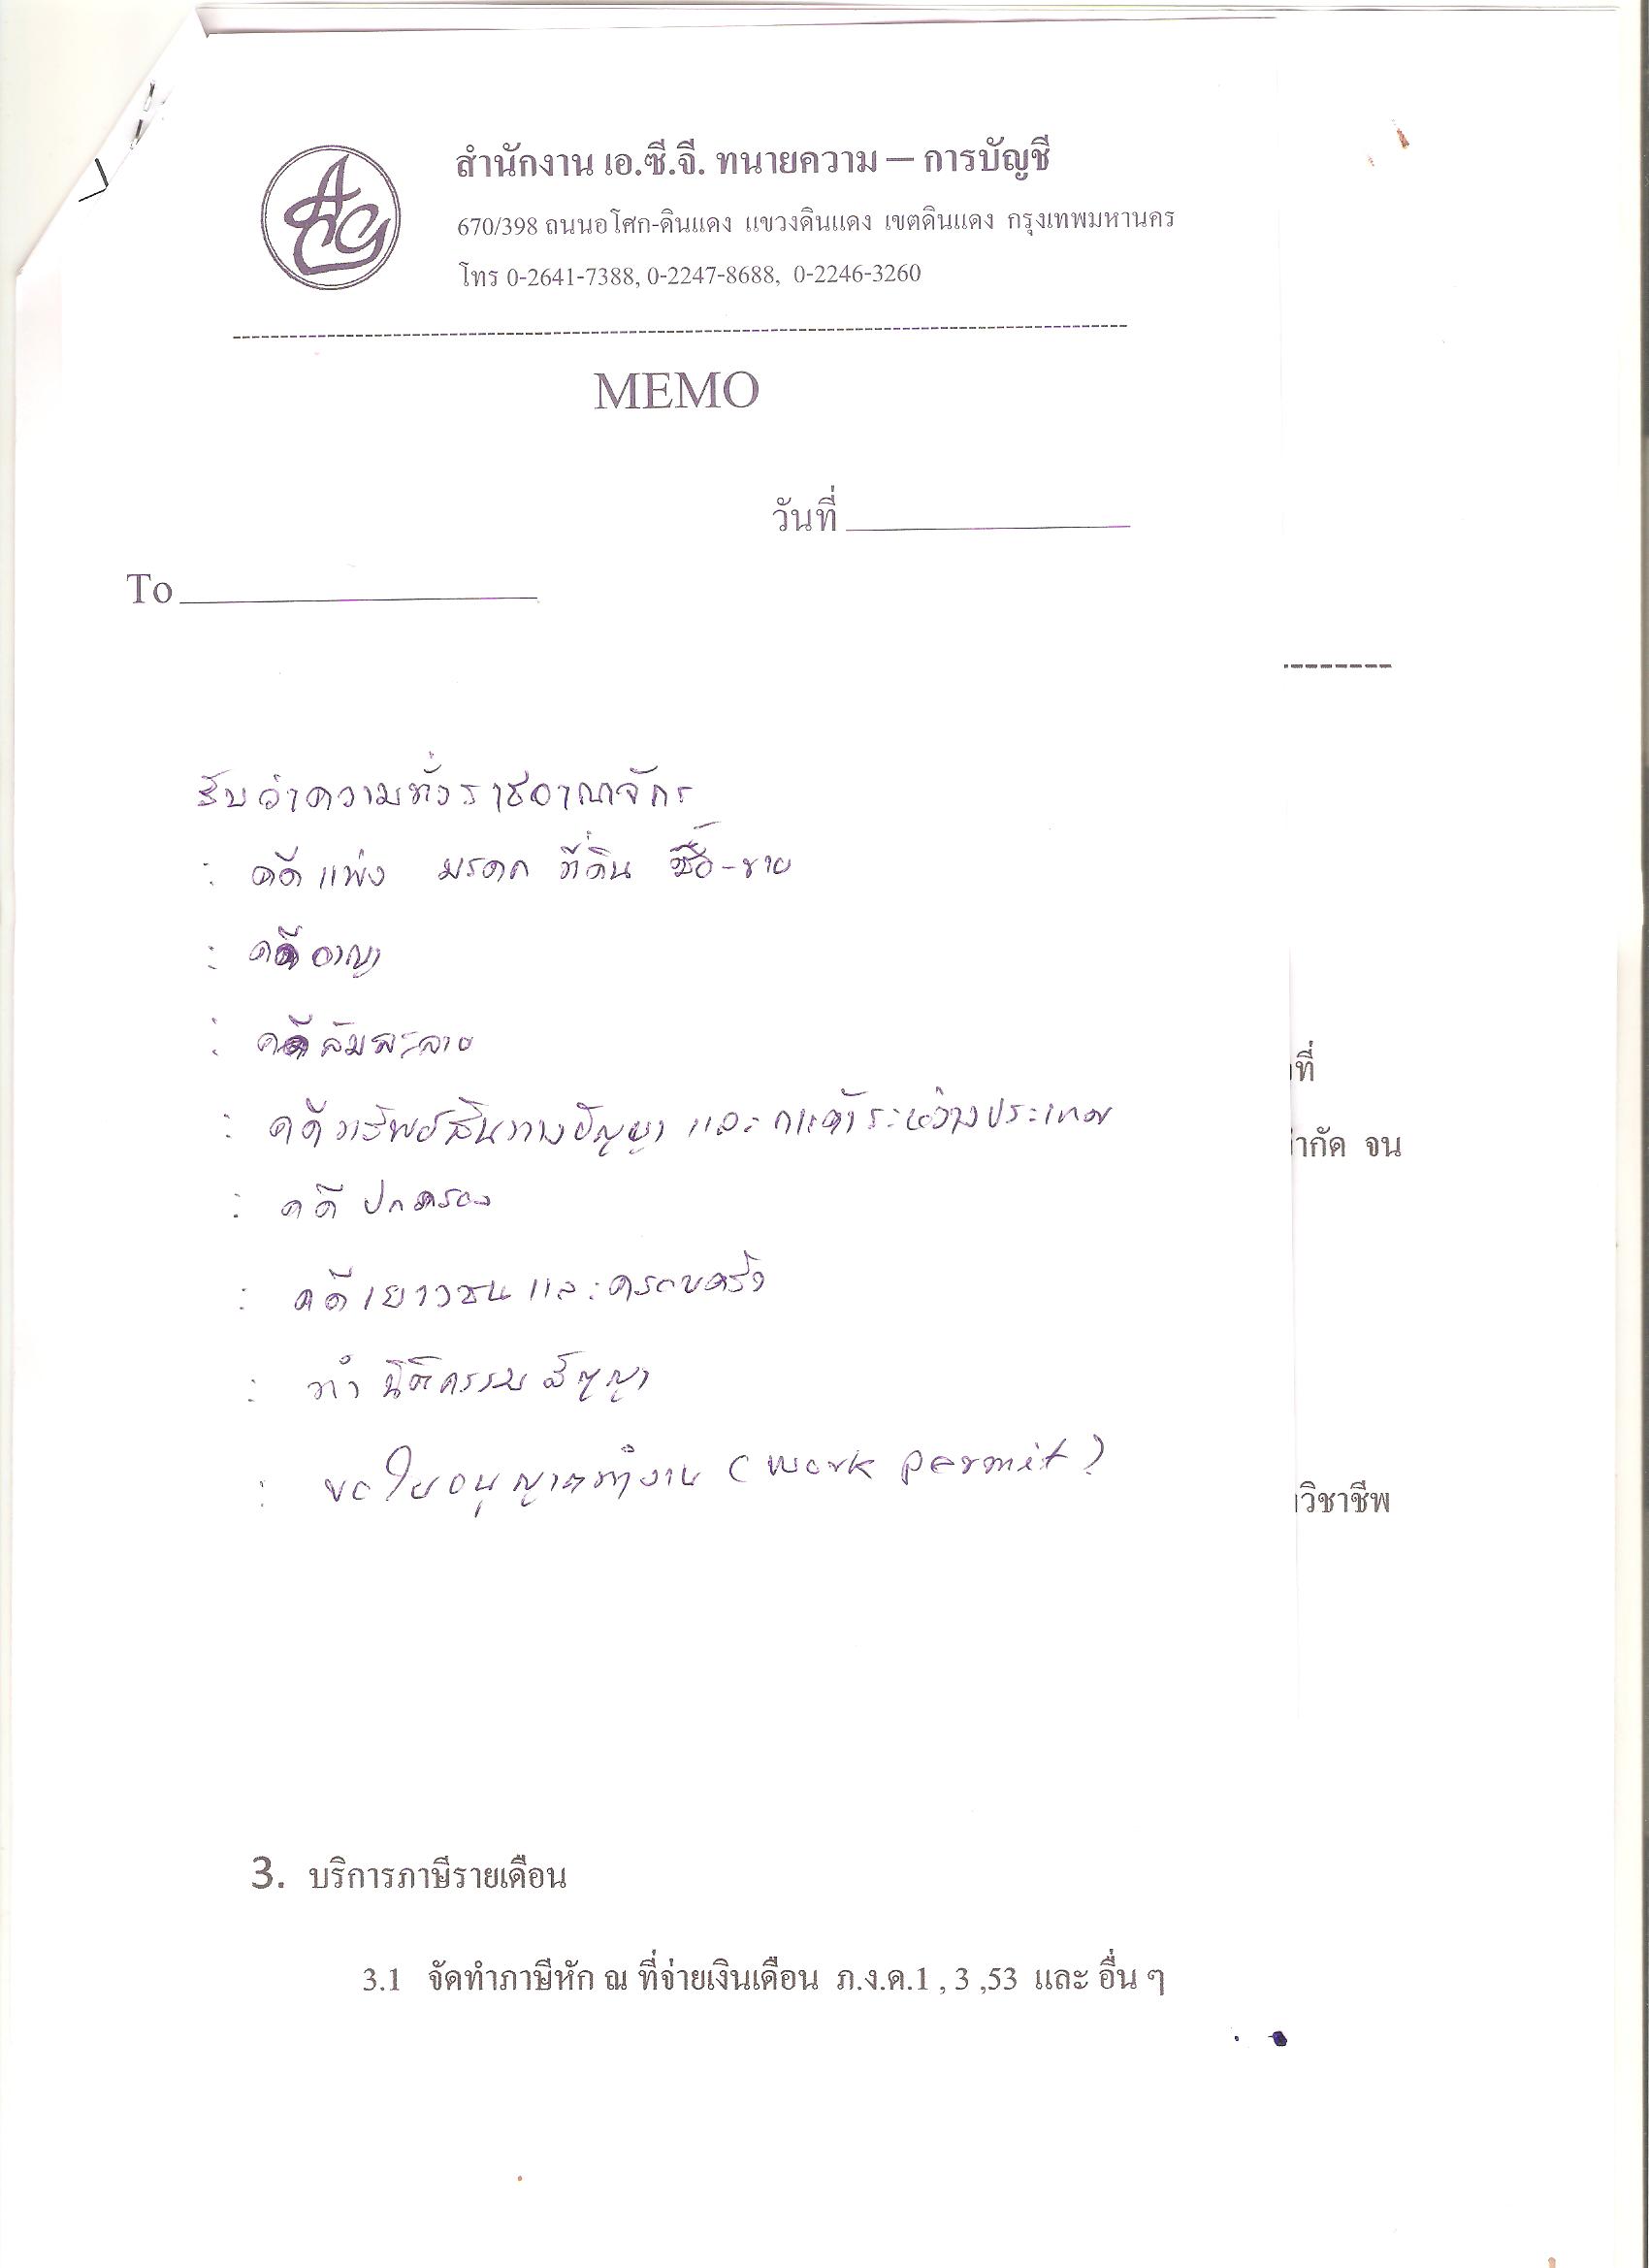 สำนักงาน เอ.ซี.จี. ทนายความ – การบัญชี
670/398 ถนนอโศก-ดินแดง แขวงดินแดง เขตดินแดง กรุงเทพมหานคร
โทร 0-2641-7388, 0-2247-8688, 0-2246-3260
MEMO
วันที่
To
รับว่าความทั่วราชอาณาจักร
: คดีแพ่ง มรดก ที่ดิน ซื้อ-ขาย
: คดีอาญา
: คดีล้มละลาย
ที่
: คดีทรัพย์สินทางปัญญา และการค้าระหว่างประเทศ
ำกัด จน
: คดีปกครอง
: คดีเยาวชนและครอบครัว
: ทำนิติกรรมสัญญา
: ขอใบอนุญาตทำงาน (work permit)
วิชาชีพ
3. บริการภาษีรายเดือน
3.1 จัดทำภาษีหัก ณ ที่จ่ายเงินเดือน ภ.ง.ด.1 , 3 ,53 และ อื่น ๆ